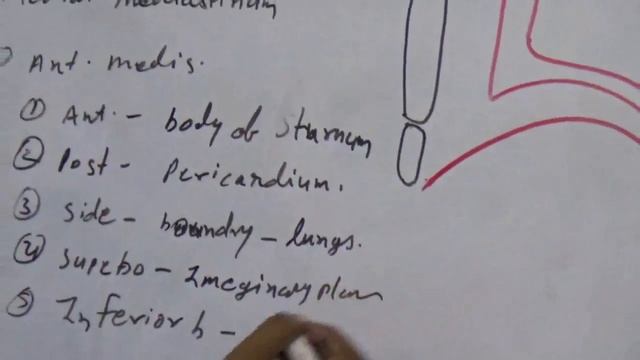 mediastinum
Ant. medis.
① Ant. - body of Starnum
② Post - Pericardium.
③ Side - boundry - lungs.
④ Supebo - Imeginary plan
⑤ Inferior b -